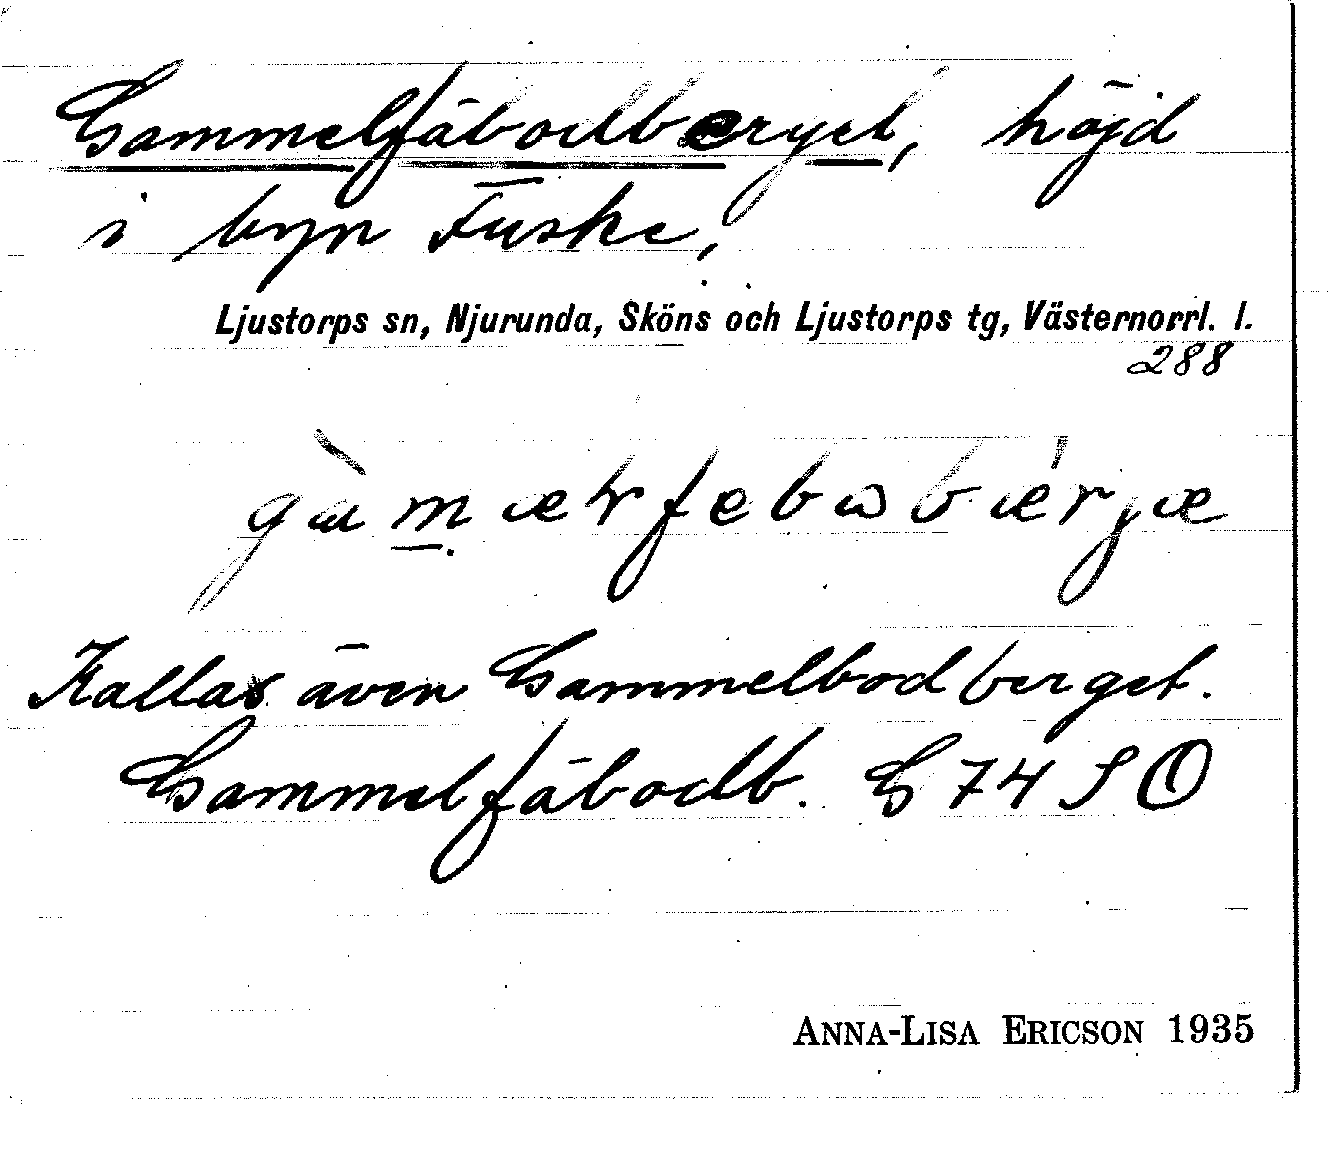 Gammelfäbodberget, höjd
i byn Fuske,
Ljustorps sn, Njurunda, Sköns och Ljustorps tg, Västernorrl. l.
288
Kallas även Gammelbodberget.
Gammelfäbodb. G 74 S O
ANNA-LISA ERICSON 1935